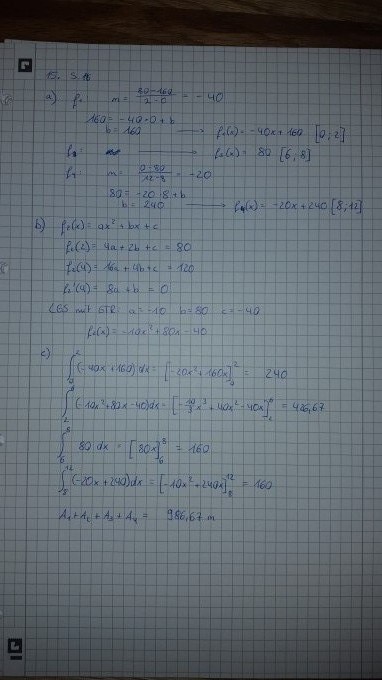 15. S. 18
a) f₁ m = (80-160)/(2-0) = -40
160 = -40·0 + b
b = 160 → f₁(x) = -40x+160 [0;2]
f₃: → f₃(x) = 80 [6;8]
f₄: m = (0-80)/(12-8) = -20
80 = -20·8+b
b = 240 → f₄(x) = -20x+240 [8;12]
b) f₂(x) = ax²+bx+c
f₂(2) = 4a+2b+c = 80
f₂(4) = 16a+4b+c = 120
f₂'(4) = 8a+b = 0
LGS mit GTR: a=-10 b=80 c=-40
f₂(x) = -10x²+80x-40
c) ∫₀² (-40x+160)dx = [-20x²+160x]₀² = 240
∫₂⁶ (-10x²+80x-40)dx = [-10/3x³+40x²-40x]₂⁶ = 426,67
∫₆⁸ 80 dx = [80x]₆⁸ = 160
∫₈¹² (-20x+240)dx = [-10x²+240x]₈¹² = 160
A₁+A₂+A₃+A₄ = 986,67 m